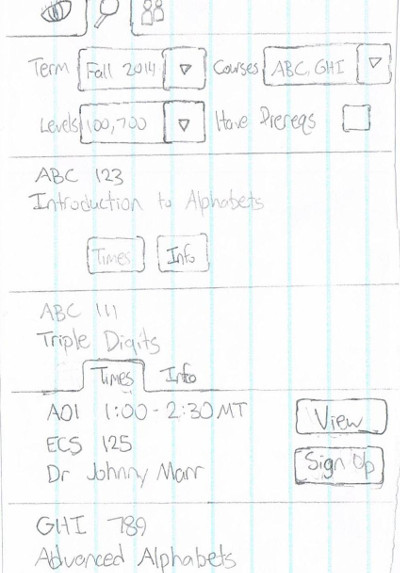 Term Fall 2014 Courses ABC, GHI
Levels 100,700 Have Prereqs
ABC 123
Introduction to Alphabets
Times Info
ABC 111
Triple Digits
Times Info
A01 1:00-2:30 MT
View
ECS 125
Sign Up
Dr Johnny Marr
GHI 789
Advanced Alphabets